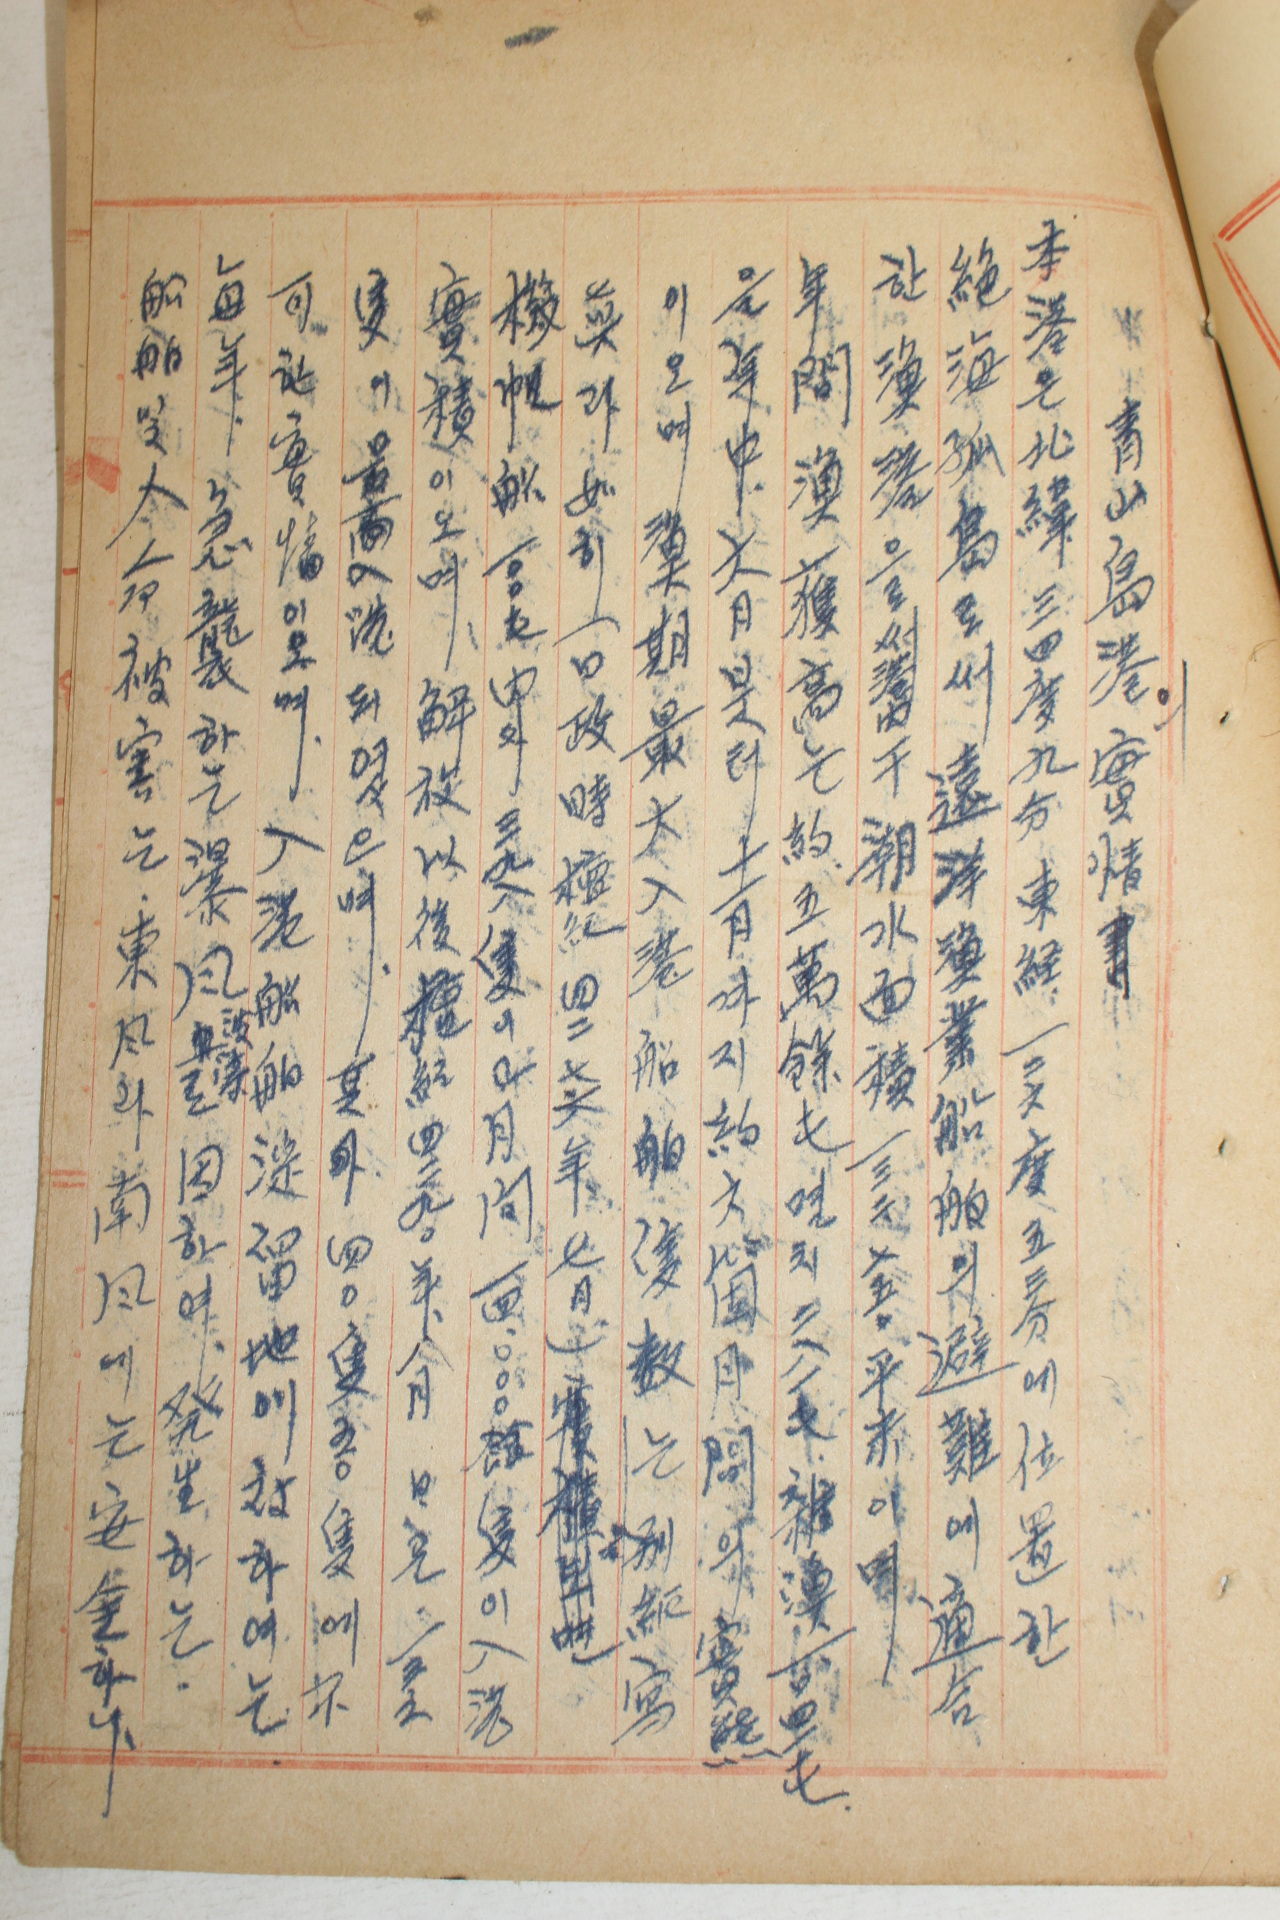 靑山島港의 實情書
本港은 北緯 三四度九分 東経 一二六度五三分에 位置한
絶海孤島로써 遠洋漁業船舶의 避難에 適合
한 漁港으로써 港內干潮水面積 一三六 平米이며
年間 漁獲高는 約五萬餘屯 멸치 二八八屯 雜漁 百四二屯.
은 年中 六月브터 十一月까지 約六個月間의 實態
이오며 漁期 最大入港 船舶隻數는 別紙 寫
本과 如히 日政時 檀紀 四二七六年 七月
機帆船 中 隻이 月間 四.000餘隻이 入港
實積이오며 解放以後 檀紀 四二九0年 八月 日은
隻이 最高入港되였으며. 其外 四0隻 隻에 不
可한 實情이오며. 入港船舶 淀留地에 對하여는
每年. 急襲하는 暴風 波濤로 因하여. 発生하는.
船舶 및 人命被害는. 東風과 南風에는 安全하나.